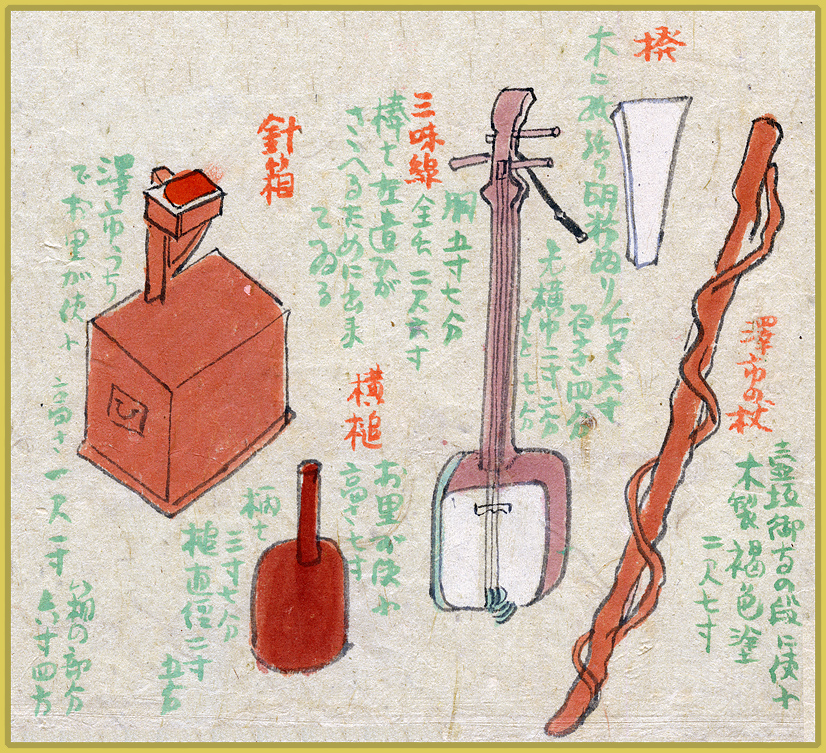 撥
木に胡粉ぬり
長さ六寸
厚さ四分
元横巾二寸二分
もと七分
澤市の杖
壺坂御寺の段に使ふ
木製 褐色塗
二尺七寸
三味線
全長 二尺六寸
胴 五寸七分
棒で左遣ひが
さゝへるために出来
てゐる
針箱
澤市うち
でお里が使ふ
高さ 一尺一寸
箱の部分
六寸四方
横槌
お里が使ふ
高さ七寸
柄七 三寸七分
槌直径二寸
五分